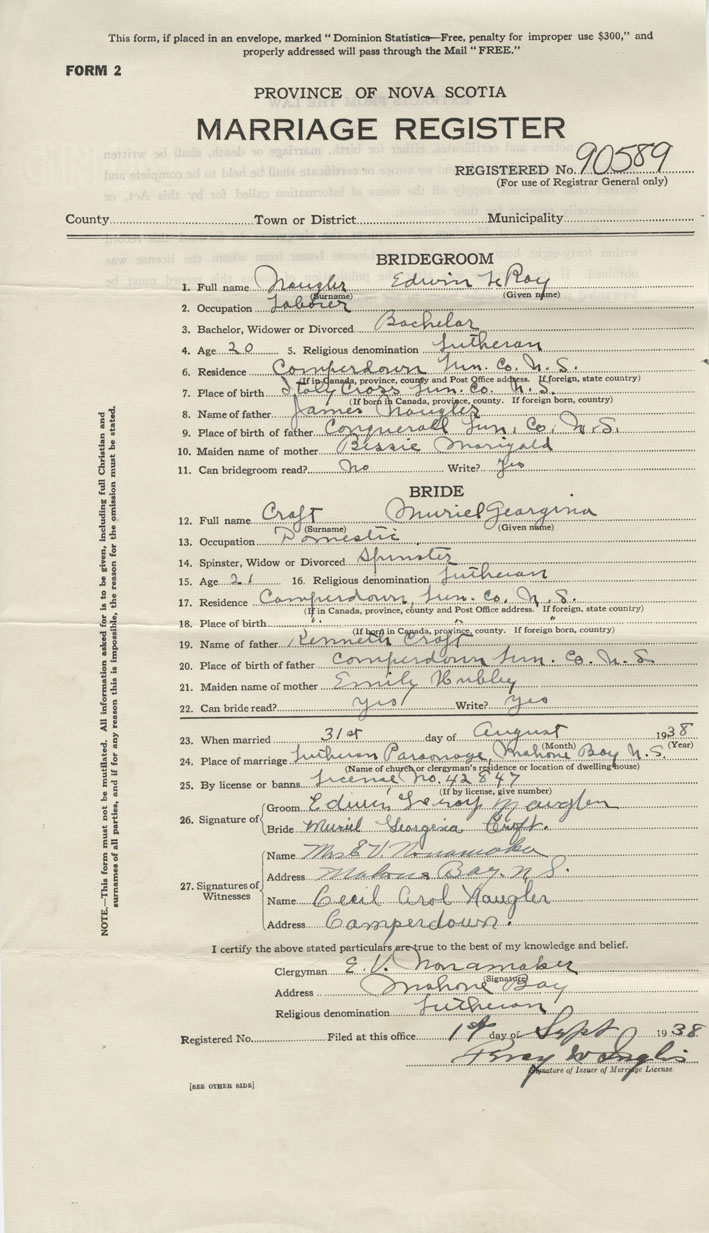 This form, if placed in an envelope, marked "Dominion Statistics—Free, penalty for improper use $300," and
properly addressed will pass through the Mail "FREE."
FORM 2
PROVINCE OF NOVA SCOTIA
MARRIAGE REGISTER
REGISTERED No. 90589
(For use of Registrar General only)
County Town or District Municipality
BRIDEGROOM
1. Full name Naugler Edwin LeRoy
(Surname) (Given name)
2. Occupation Laborer
3. Bachelor, Widower or Divorced Bachelor
4. Age 20 5. Religious denomination Lutheran
6. Residence Comperdown Lun. Co. N. S.
(If in Canada, province, county and Post Office address. If foreign, state country)
7. Place of birth Italy Cross Lun. Co. N. S.
(If born in Canada, province, county. If foreign born, country)
8. Name of father James Naugler
9. Place of birth of father Conquerall Lun. Co. N. S.
10. Maiden name of mother Bessie Marigald
11. Can bridegroom read? No Write? Yes
BRIDE
12. Full name Craft Muriel Georgina
(Surname) (Given name)
13. Occupation Domestic
14. Spinster, Widow or Divorced Spinster
15. Age 21 16. Religious denomination Lutheran
17. Residence Camperdown, Lun. Co. N. S.
(If in Canada, province, county and Post Office address. If foreign, state country)
18. Place of birth " " "
(If born in Canada, province, county. If foreign born, country)
19. Name of father Kenneth Craft
20. Place of birth of father Comperdown Lun. Co. N. S.
21. Maiden name of mother Emily Hubley
22. Can bride read? yes Write? yes
23. When married 31st day of August 1938
(Month) (Year)
24. Place of marriage Lutheran Parsonage, Mahone Bay N. S.
(Name of church or clergyman's residence or location of dwelling house)
25. By license or banns License No. 42847
(If by license, give number)
26. Signature of Groom Edwin Leroy Naugler
Bride Muriel Georgina Craft.
27. Signatures of Witnesses
Name Mrs E V. Nonamaker
Address Mahone Bay. N S.
Name Cecil Arol Naugler
Address Camperdown.
I certify the above stated particulars are true to the best of my knowledge and belief.
Clergyman E. V. Nonamaker
(Signature)
Address Mahone Bay
Religious denomination Lutheran
Registered No. Filed at this office 1st day of Sept 1938
Percy W Inglis
Signature of Issuer of Marriage License.
[SEE OTHER SIDE]
NOTE.—This form must not be mutilated. All information asked for is to be given, including full Christian and
surnames of all parties, and if for any reason this is impossible, the reason for the omission must be stated.